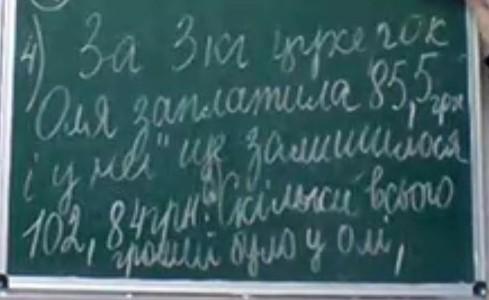 4) За 3 кг цукерок
Оля заплатила 85,5 грн
і у неї ще залишилося
102, 84 грн. Скільки всього
грошей було у Олі,